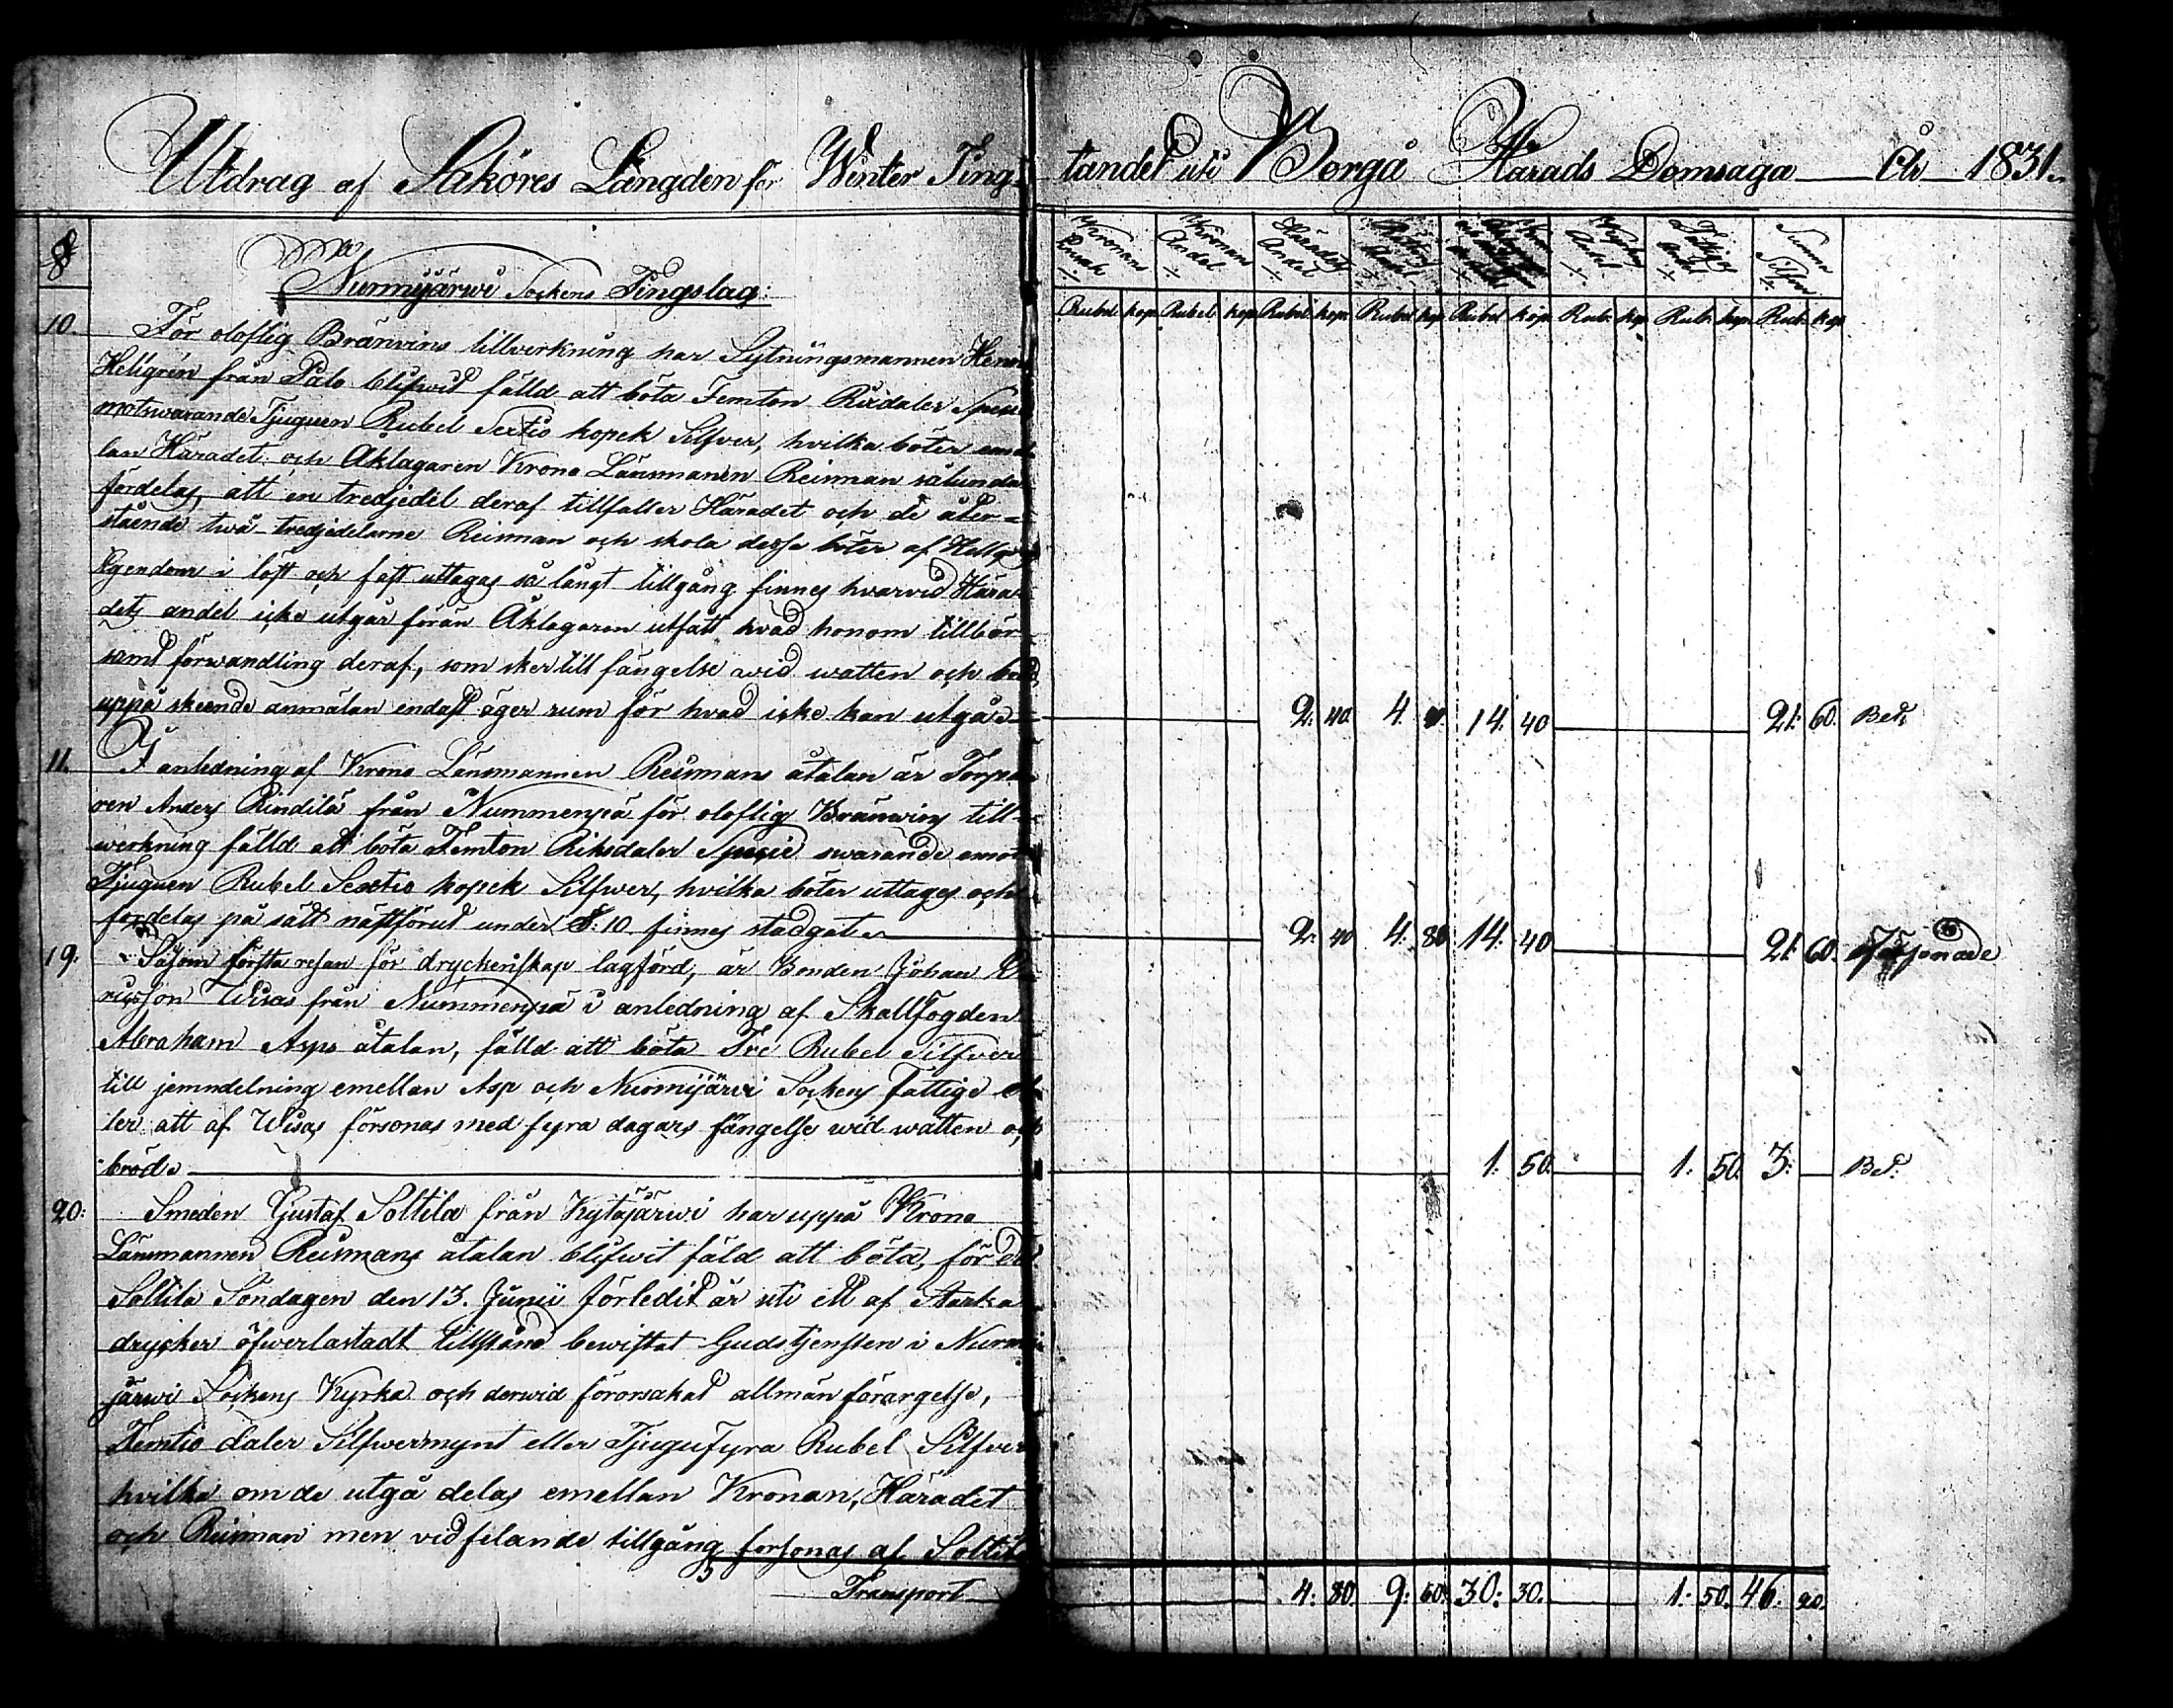 Utdrag af Saköres Längden för Winter Ting
tandet uti Borgå Härads Domsaga År 1831.
§
Nurmijärwi Sockens Tingslag:
10. För oloflig Bränvins tillverkning har Sytningsmannen Henr
Hellgrén från Palo blifwit fälld att böta Femton Rixdaler Speci
motswarande Tjuguen Rubel Sextio kopek Silfver, hvilka böter emel
lan Häradet och Åklagaren Krono Länsmannen Reinman sålunda
fördelas, att en tredjedel deraf tillfaller Häradet och de åter=
stående twå tredjedelarne Reinman och skola dessa böter af Hellgr
Egendom i löst och fast uttagas så långt tillgång finnes hvarvid Hära
dets andel icke utgår förän Åklagaren utfått hvad honom tillbör
samt förwandling deraf, som sker till fängelse wid watten och bröd
uppå skeende anmälan endast äger rum för hvad icke kan utgå
11. I anledning af Krono Länsmannen Reinmans åtalan är Torpa
ren Anders Rindilä från Nummenpä för oloflig Bränwins till-
werkning fälld att böta Femton Riksdaler Specie swarande emot
Tjuguen Rubel Sextio kopek Silfwer, hvilka böter uttages och
fördelas på sätt näst förut under §. 10 finnes stadgat
19. Såsom första resan för dryckenskap lagförd, är Bonden Johan
ricsson Wisas från Nummenpä i anledning af Skallfogden
Abraham Asps åtalan, fälld att böta Tre Rubel Silfver
till jemndelning emellan Asp och Nurmijärvi Sockens Fattige el
ler att af Wisas försonas med fyra dagars fängelse wid watten och
bröd.
20: Smeden Gustaf Soltila från Kytäjärwi har uppå Krono
Länsmannen Reinmans åtalan blifwit fäld att böta, för det
Soltila Söndagen den 13. Junii förledit år uti ett af Starka
drycker öfwerlastadt tillstånd bewistat Gudstjensten i Nurmi
järwi Sockens Kyrka och derwid förorsakat allmän förargelse,
Femtio daler Silfwermynt eller Tjugufyra Rubel Silfver
hvilka om de utgå delas emellan Kronan, Häradet
och Reinman men vid felande tillgång försonas af Soltila
Transport
Kronans Ensak Kronans Andel Härads Andel Andel Andel Fattiges Andel Summa Silfver
Rubel kop. Rubel kop. Rubel kop. Rubel kop. Rubel kop. Rub. kop. Rub. kop. Rub. kop.
2: 40. 4. 14. 40 21: 60. Bet.
2: 40 4: 80 14: 40 21: 60. Försonade
1: 50. 1: 50. 3: Bet.
4: 80. 9: 60. 30: 30. 1: 50. 46: 20.